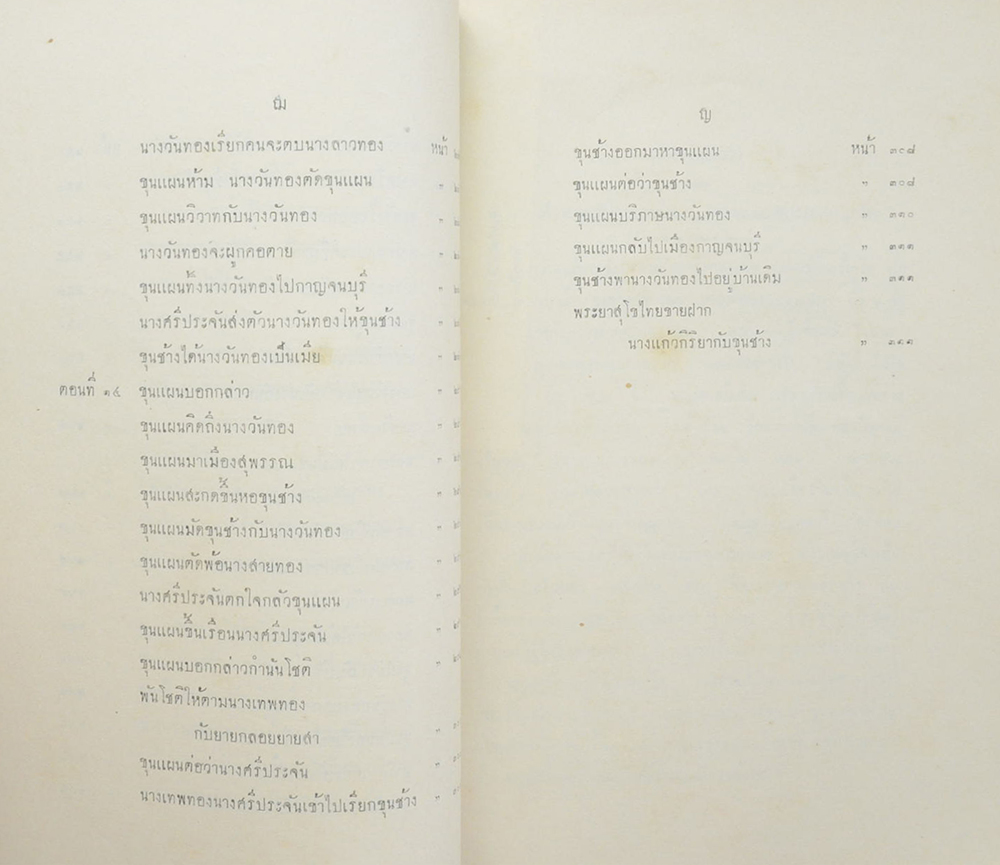 ฌ
นางวันทองเรียกคนจะตบนางลาวทอง หน้า
ขุนแผนห้าม นางวันทองตัดขุนแผน "
ขุนแผนวิวาทกับนางวันทอง "
นางวันทองจะผูกคอตาย "
ขุนแผนทิ้งนางวันทองไปกาญจนบุรี "
นางศรีประจันส่งตัวนางวันทองให้ขุนช้าง "
ขุนช้างได้นางวันทองเป็นเมีย "
ตอนที่ ๑๔ ขุนแผนบอกกล่าว "
ขุนแผนคิดถึงนางวันทอง "
ขุนแผนมาเมืองสุพรรณ "
ขุนแผนสะกดขึ้นหอขุนช้าง "
ขุนแผนมัดขุนช้างกับนางวันทอง "
ขุนแผนตัดพ้อนางสายทอง "
นางศรีประจันตกใจกลัวขุนแผน "
ขุนแผนขึ้นเรือนนางศรีประจัน "
ขุนแผนบอกกล่าวกำนันโชติ "
พันโชติให้ตามนางเทพทอง
กับยายกลอยยายสา "
ขุนแผนต่อว่านางศรีประจัน "
นางเทพทองนางศรีประจันเข้าไปเรียกขุนช้าง "
ญ
ขุนช้างออกมาหาขุนแผน หน้า ๓๐๘
ขุนแผนต่อว่าขุนช้าง " ๓๐๘
ขุนแผนบริภาษนางวันทอง " ๓๑๐
ขุนแผนกลับไปเมืองกาญจนบุรี " ๓๑๑
ขุนช้างพานางวันทองไปอยู่บ้านเดิม " ๓๑๑
พระยาสุโขไทยขายฝาก
นางแก้วกิริยากับขุนช้าง " ๓๑๑